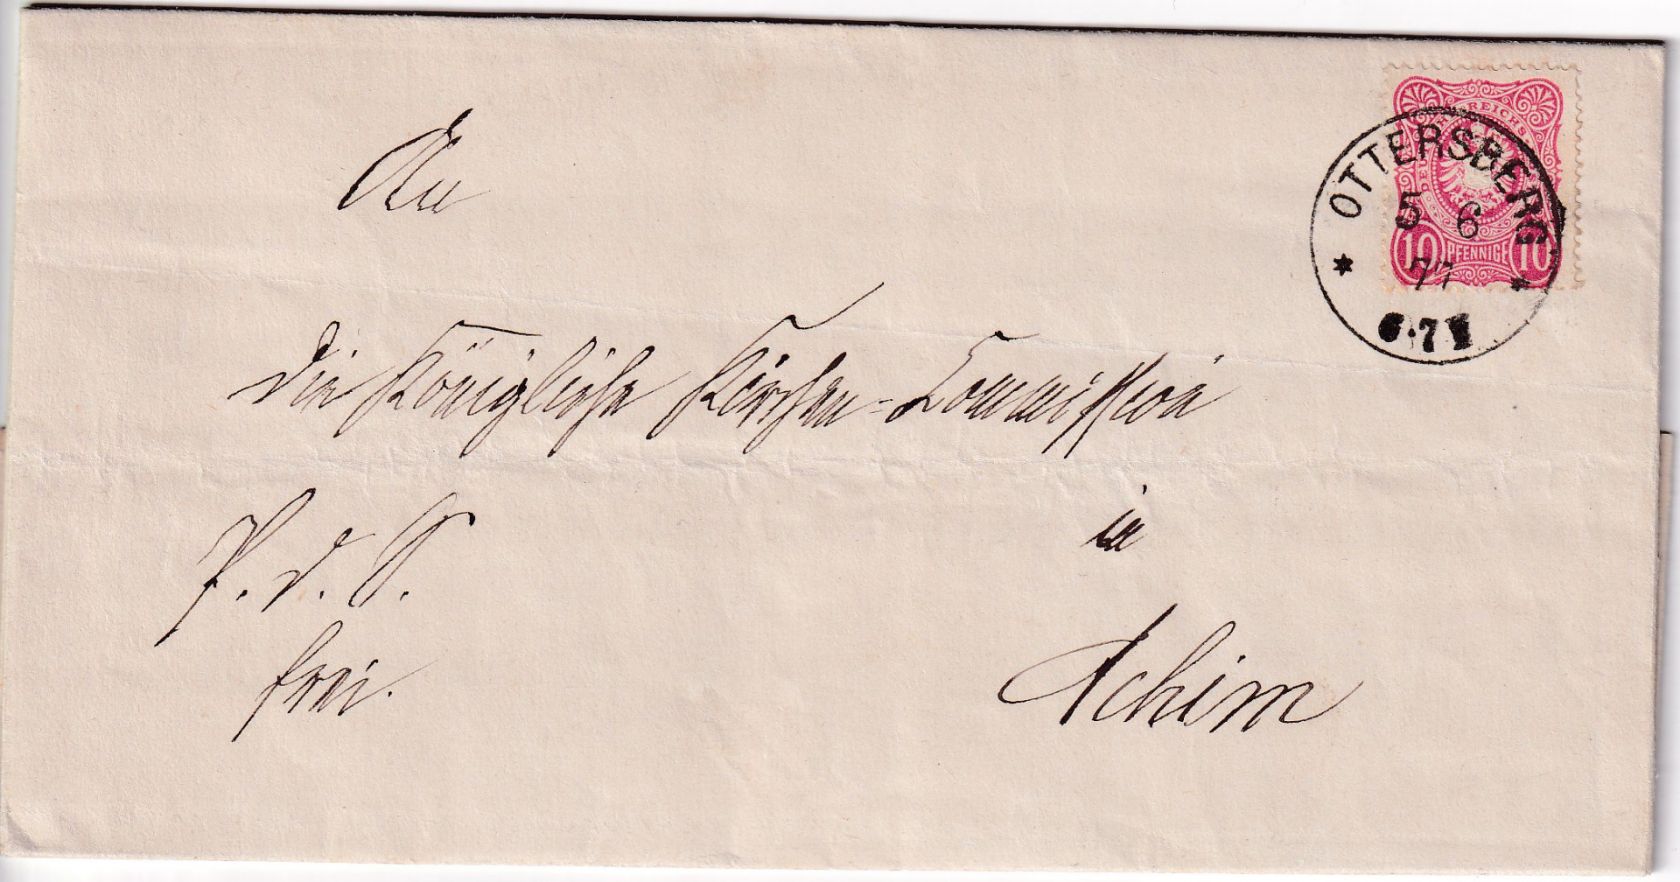 An
die Königliche Kirchen-Commission
in
Achim
P. d. A.
frei.
DEUTSCHE REICHS-POST
10 PFENNIGE 10
OTTERSBERG
5 6
77
6-7